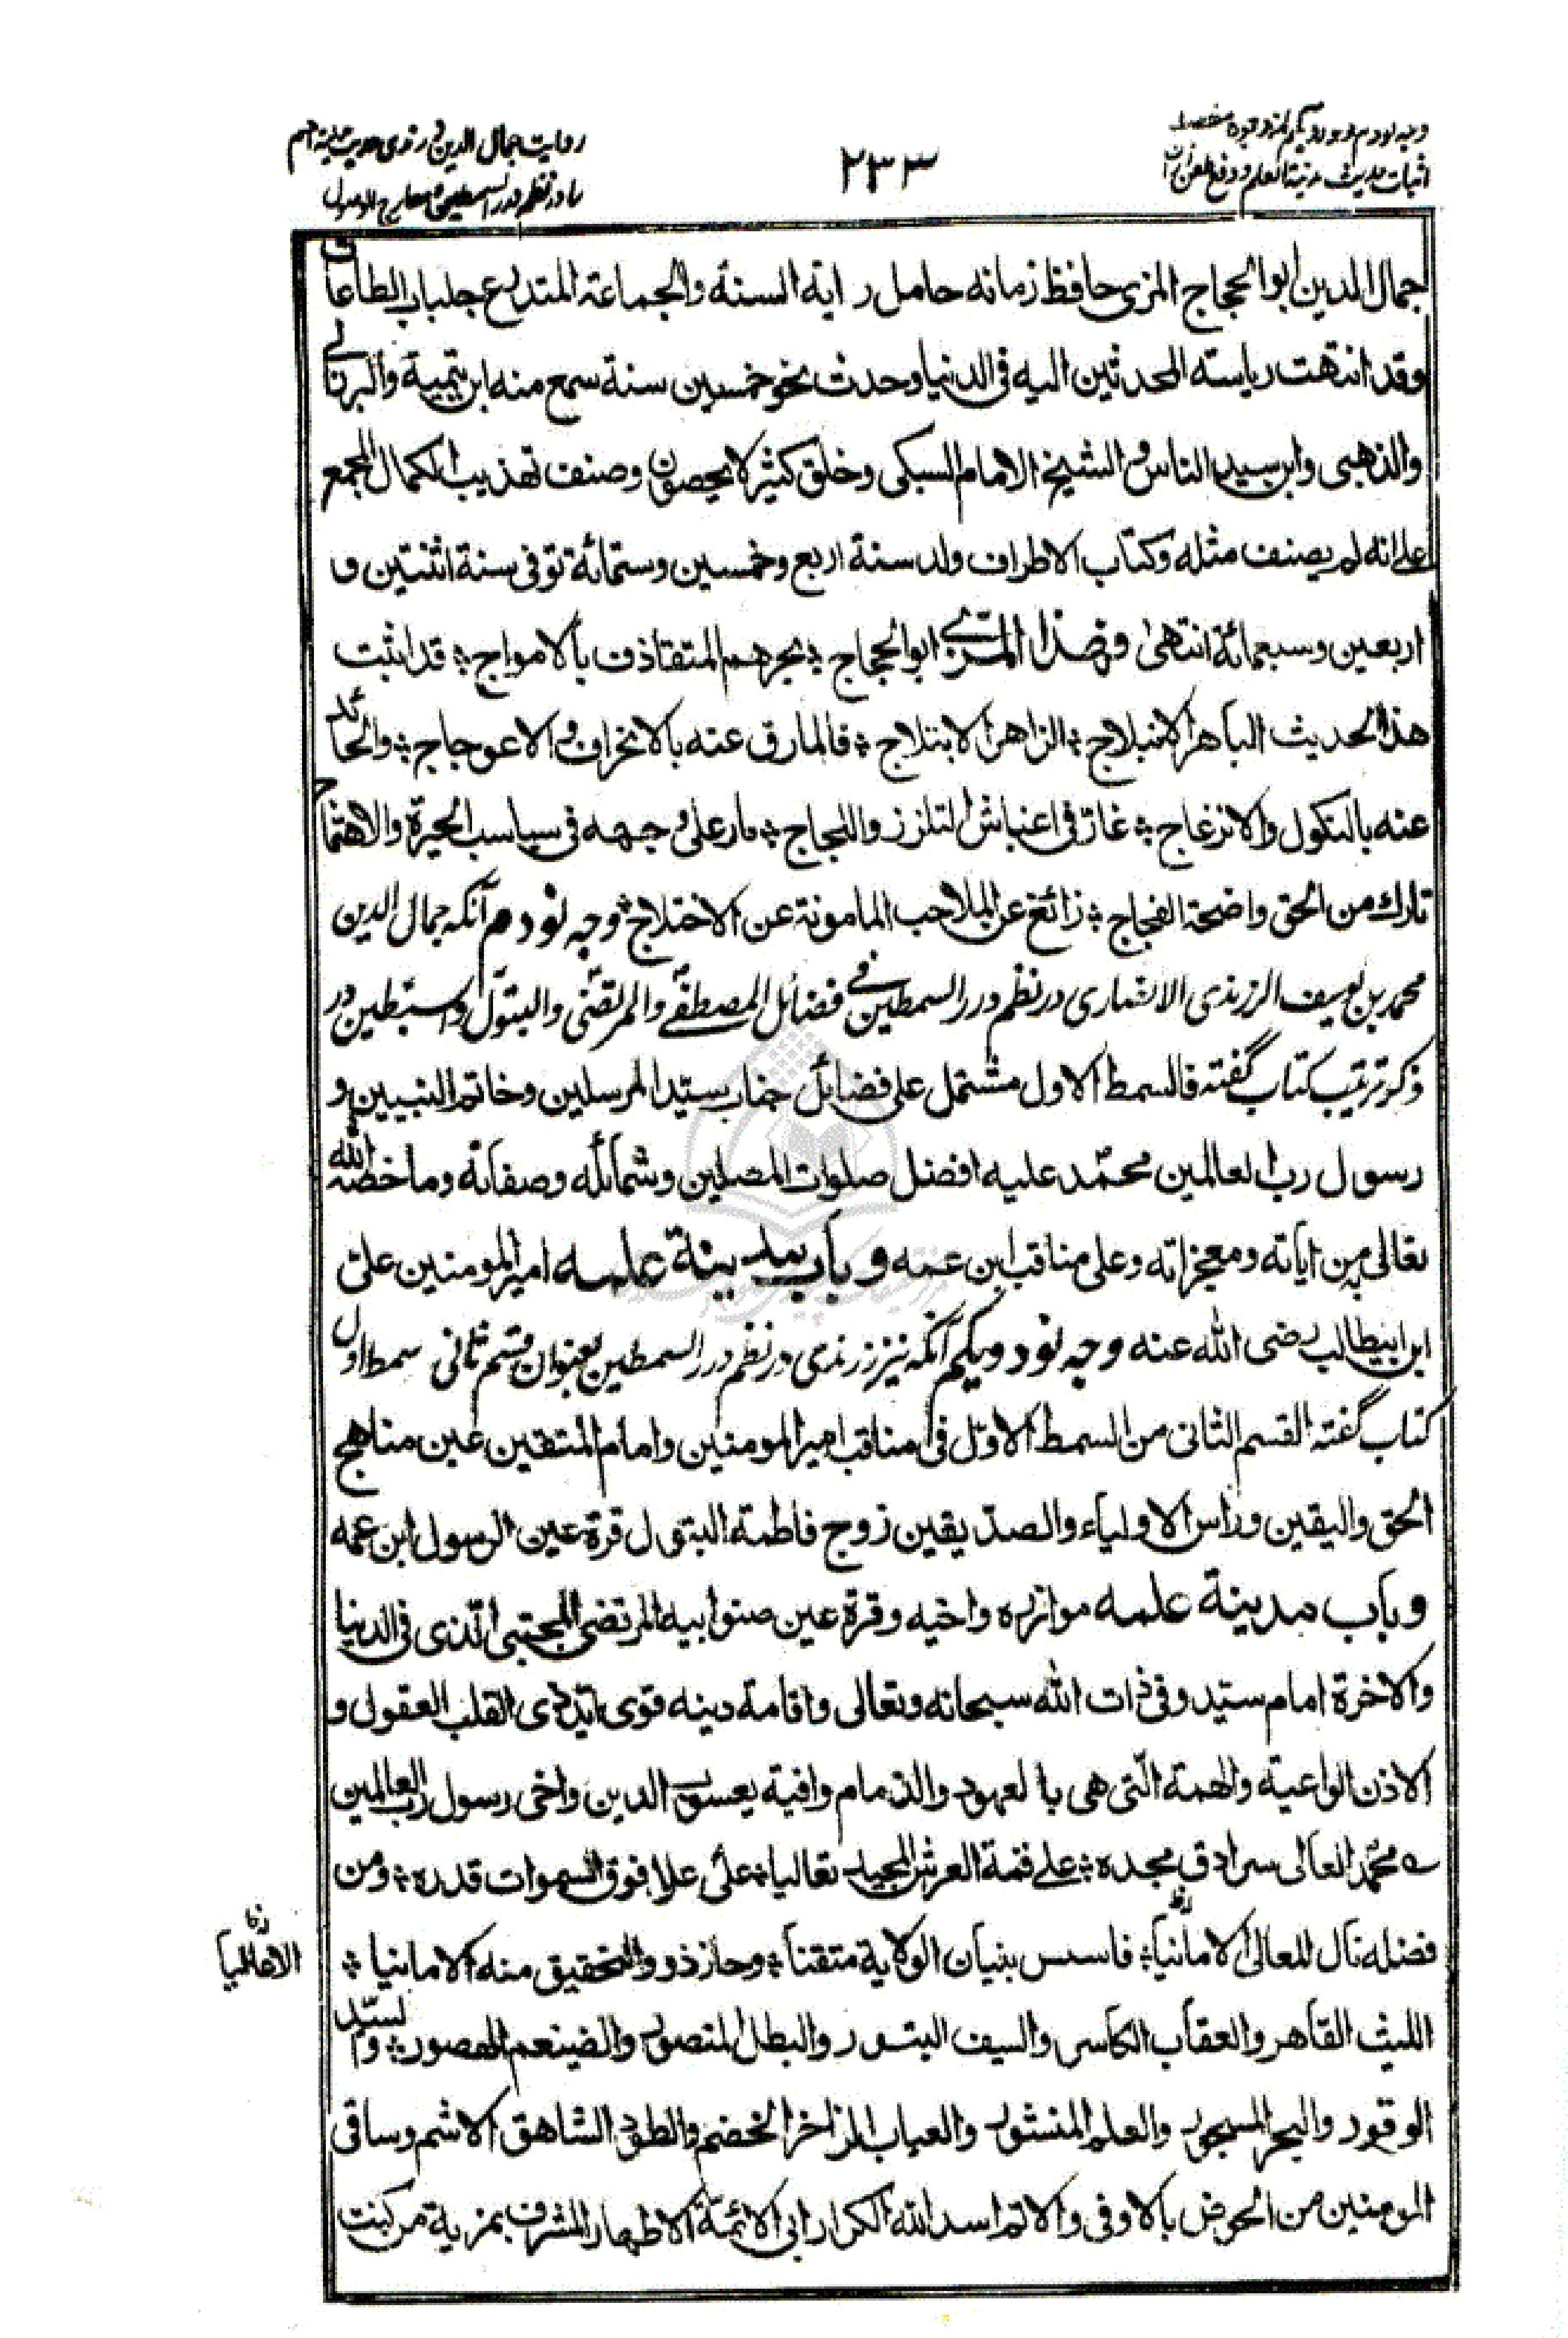 وجه نودم و نود و یکم از وجوه
اثبات حدیث مدینة العلم و دفع طعن ازان
۲۳۳
روایت جمال الدین زرندی حدیث مدینة العلم
را در نظم درر السمطین و معارج الوصول
جمال الدين ابو الحجاج المزى حافظ زمانه حامل راية السنة والجماعة المتدرع جلباب الطاعات
وقد انتهت رياسته المحدثين اليه فى الدنيا وحدث نحو خمسين سنة سمع منه ابن تيمية والبرزالى
والذهبى وابن سيد الناس والشيخ الامام السبكى وخلق كثير لا يحصون وصنف تهذيب الكمال المجمع
على انه لم يصنف مثله وكتاب الاطراف ولد سنة اربع وخمسين وستمائة توفى سنة اثنتين و
اربعين وسبعمائة انتهى فهذا المزى ابو الحجاج * بحرهم المتقاذف بالامواج * قد اثبت
هذا الحديث الباهر الانبلاج * الزاهر الابتلاج * فالمارق عنه بالانحراف والاعوجاج * والحائد
عنه بالنكول والانزعاج * غار فى اغباش التلزز واللجاج * مار على وجهه فى سباسب الحيرة والاهتماج
تارك من الحق واضحة الفجاج * زائغ عن الملاحب المامونة عن الاختلاج * وجه نودم آنکه جمال الدین
محمد بن یوسف الزرندی الانصاری در نظم درر السمطین فی فضائل المصطفی والمرتضی والبتول والسبطین در
ذکر ترتیب کتاب گفته فالسمط الاول مشتمل على فضائل جناب سيد المرسلين وخاتم النبيين و
رسول رب العالمين محمّد عليه افضل صلوات المصلين وشمائله وصفاته وما خصّه الله
تعالى من اياته ومعجزاته وعلى مناقب ابن عمه وباب مدينة علمه امير المومنين على
ابن ابيطالب رضى الله عنه وجه نود و یکم آنکه نیز زرندی در نظم درر السمطین بعنوان قسم ثانی سمط اول
کتاب گفته القسم الثانى من السمط الاوّل فى مناقب امير المومنين وامام المتقين عين مناهج
الحق واليقين وراس الاولياء والصديقين زوج فاطمة البتول قرة عين الرسول ابن عمه
وباب مدينة علمه موازره واخيه وقرة عين صنو ابيه المرتضى المجتبى الّذى فى الدنيا
والاخرة امام سيد وفى ذات الله سبحانه وتعالى واقامة دينه قوى ايّد ذى القلب العقول و
الاذن الواعية والهمة الّتى هى بالعهود والذمام وافية يعسوب الدين واخى رسول رب العالمين
محمّد العالى سرادق مجده * على قمة العرش المجيد تعاليا * علىّ علا فوق السموات قدره * ومن
فضله نال المعالى الامانيا * فاسس بنيان الولاية متقنا * وحاز ذوو التحقيق منه الامانيا *
الاعاليا
الليث القاهر والعقاب الكاسر والسيف البتور والبطل المنصور والضيغم الهصور * والسيّد
الوقور والبحر المسجور والعلم المنشور والعباب الزاخر الخضم والطود الشاهق الاشم وساقى
المومنين من الحوض بالاوفى والاتم اسد الله الكرار ابى الائمّة الاطهار المشرف بمزية من كنت